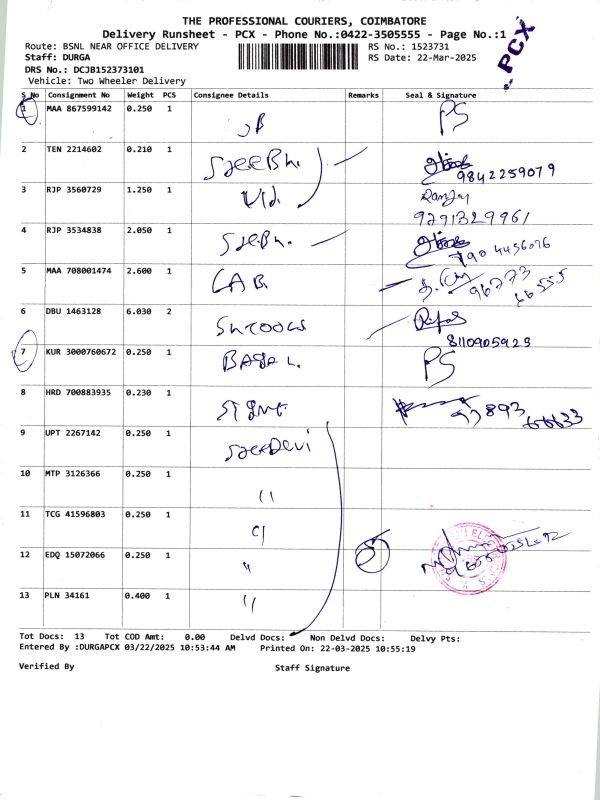 THE PROFESSIONAL COURIERS, COIMBATORE
Delivery Runsheet - PCX - Phone No.:0422-3505555 - Page No.:1
PCX
Route: BSNL NEAR OFFICE DELIVERY
RS No.: 1523731
Staff: DURGA
RS Date: 22-Mar-2025
DRS No.: DCJB152373101
Vehicle: Two Wheeler Delivery
S No Consignment No Weight PCS Consignee Details Remarks Seal & Signature
1 MAA 867599142 0.250 1 PS
2 TEN 2214602 0.210 1 9842259079
3 RJP 3560729 1.250 1 9791329961
4 RJP 3534838 2.050 1
5 MAA 708001474 2.600 1
6 DBU 1463128 6.030 2 8110905925
7 KUR 3000760672 0.250 1 PS
8 HRD 700883935 0.230 1
9 UPT 2267142 0.250 1 SreeDevi
10 MTP 3126366 0.250 1 "
11 TCG 41596803 0.250 1 "
12 EDQ 15072066 0.250 1 "
13 PLN 34161 0.400 1 "
5
Tot Docs: 13 Tot COD Amt: 0.00 Delvd Docs: Non Delvd Docs: Delvy Pts:
Entered By :DURGAPCX 03/22/2025 10:53:44 AM Printed On: 22-03-2025 10:55:19
Verified By Staff Signature